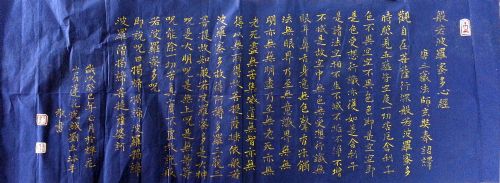 般若波羅蜜多心經
唐三藏法師玄奘奉詔譯
觀自在菩薩行深般若波羅蜜多
時照見五蘊皆空度一切苦厄舍利子
色不異空空不異色色即是空空即
是色受想行識亦復如是舍利子
是諸法空相不生不滅不垢不淨不增
不減是故空中無色無受想行識無
眼耳鼻舌身意無色聲香味觸
法無眼界乃至無意識界無無
明亦無無明盡乃至無老死亦無
老死盡無苦集滅道無智亦無
得以無所得故菩提薩埵依般若
波羅蜜多故得阿耨多羅三藐三
菩提故知般若波羅蜜多是大神
咒是大明咒是無上咒是無等等
咒能除一切苦真實不虛故說般
若波羅蜜多咒
即說咒曰揭諦揭諦波羅揭諦
波羅僧揭諦菩提薩婆訶
年正月
敬書